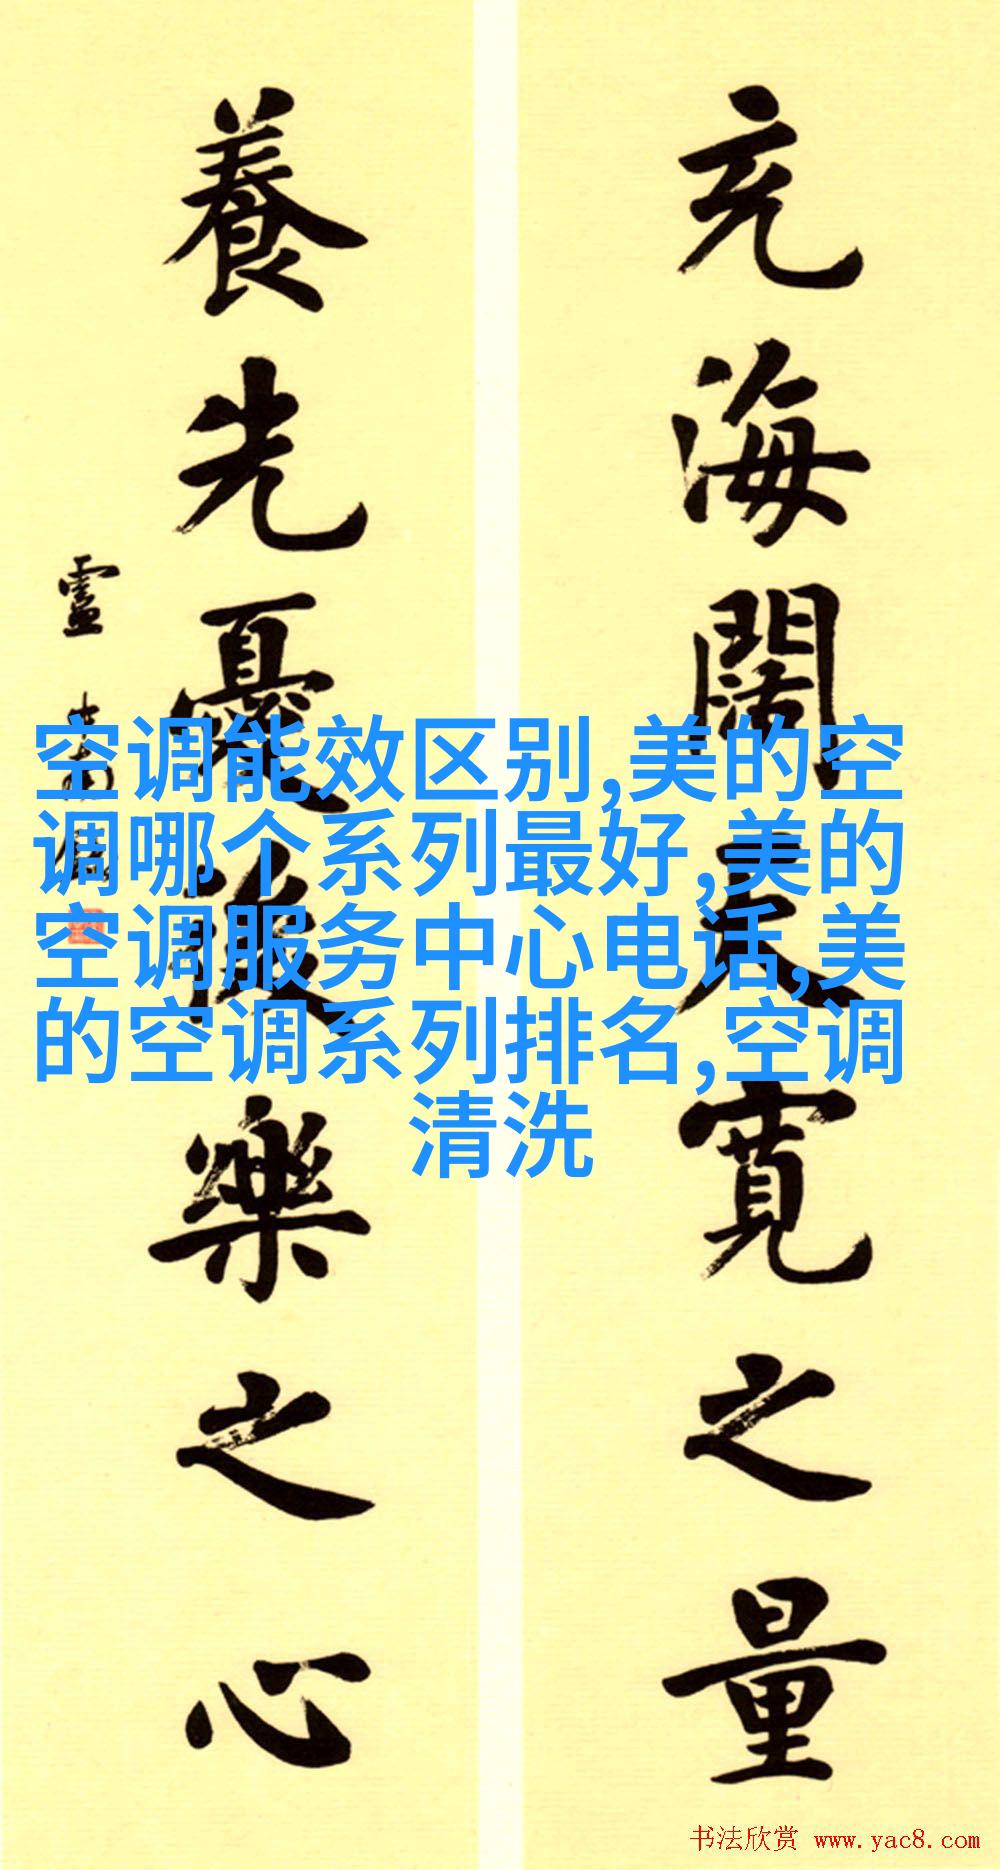 充海闊天寬之量
養先憂後樂之心
空调能效区别,美的空
调哪个系列最好,美的
空调服务中心电话,美
的空调系列排名,空调
清洗
书法欣赏 www.yac8.com